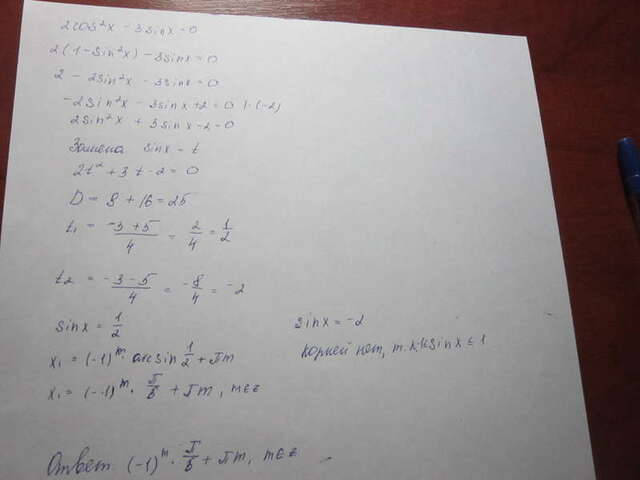 2cos²x - 3sinx = 0
2(1-sin²x) - 3sinx = 0
2 - 2sin²x - 3sinx = 0
-2sin²x - 3sinx + 2 = 0 |·(-2)
2sin²x + 3sinx - 2 = 0
Замена sinx = t
2t² + 3t - 2 = 0
D = 9 + 16 = 25
t₁ = (-3+5)/4 = 2/4 = 1/2
t₂ = (-3-5)/4 = -8/4 = -2
sinx = 1/2
sinx = -2
x₁ = (-1)^m · arcsin 1/2 + πm
корней нет, т.к. sinx ≤ 1
x₁ = (-1)^m · π/6 + πm, m∈z
Ответ (-1)^m · π/6 + πm, m∈z